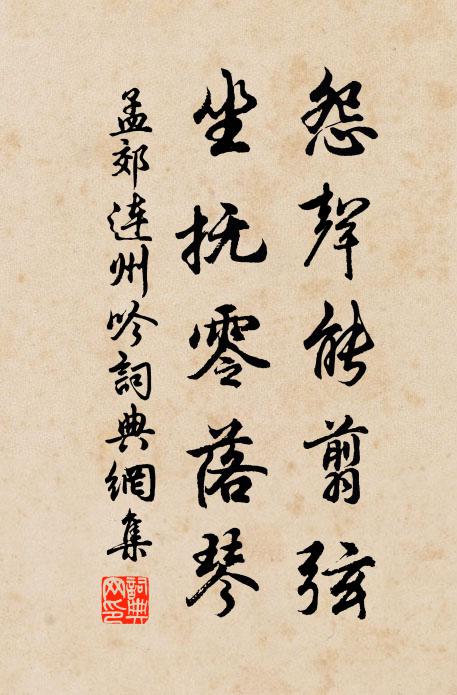 怨聲能翦弦
坐抚零落琴
孟郊連州吟詞典網集
詞典網印